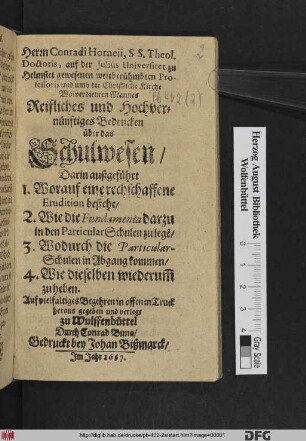 Herrn Conradi Horneii, S S. Theol.
Doctoris, auf der Julius Universitet zu
Helmstet gewesenen weitberühmbten Pro-
fessoris und umb die Christliche Kirche
Wolverdienten Mannes
Reifliches und Hochver-
nünftiges Bedencken
über das
Schulwesen/
Darin außgeführt
1. Worauf eine rechschaffene
Erudition bestehe/
2. Wie die Fundamenta darzu
in den Particular Schulen zu legē/
3. Wodurch die Particular-
Schulen in Abgang kommen/
4. Wie dieselben wiederumm
zu heben.
Auf vielfaltiges Begehren in offenen Truck
heraus gegeben und verlegt
zu Wulffenbüttel
Durch Conrad Buno/
Gedruckt bey Johan Bißmarck/
Im Jahr 1657.
2
(2)
Herzog August Bibliothek
Wolfenbüttel
Gray Scale
http://diglib.hab.de/drucke/pb-492-2s/start.htm?image=00001
DFG